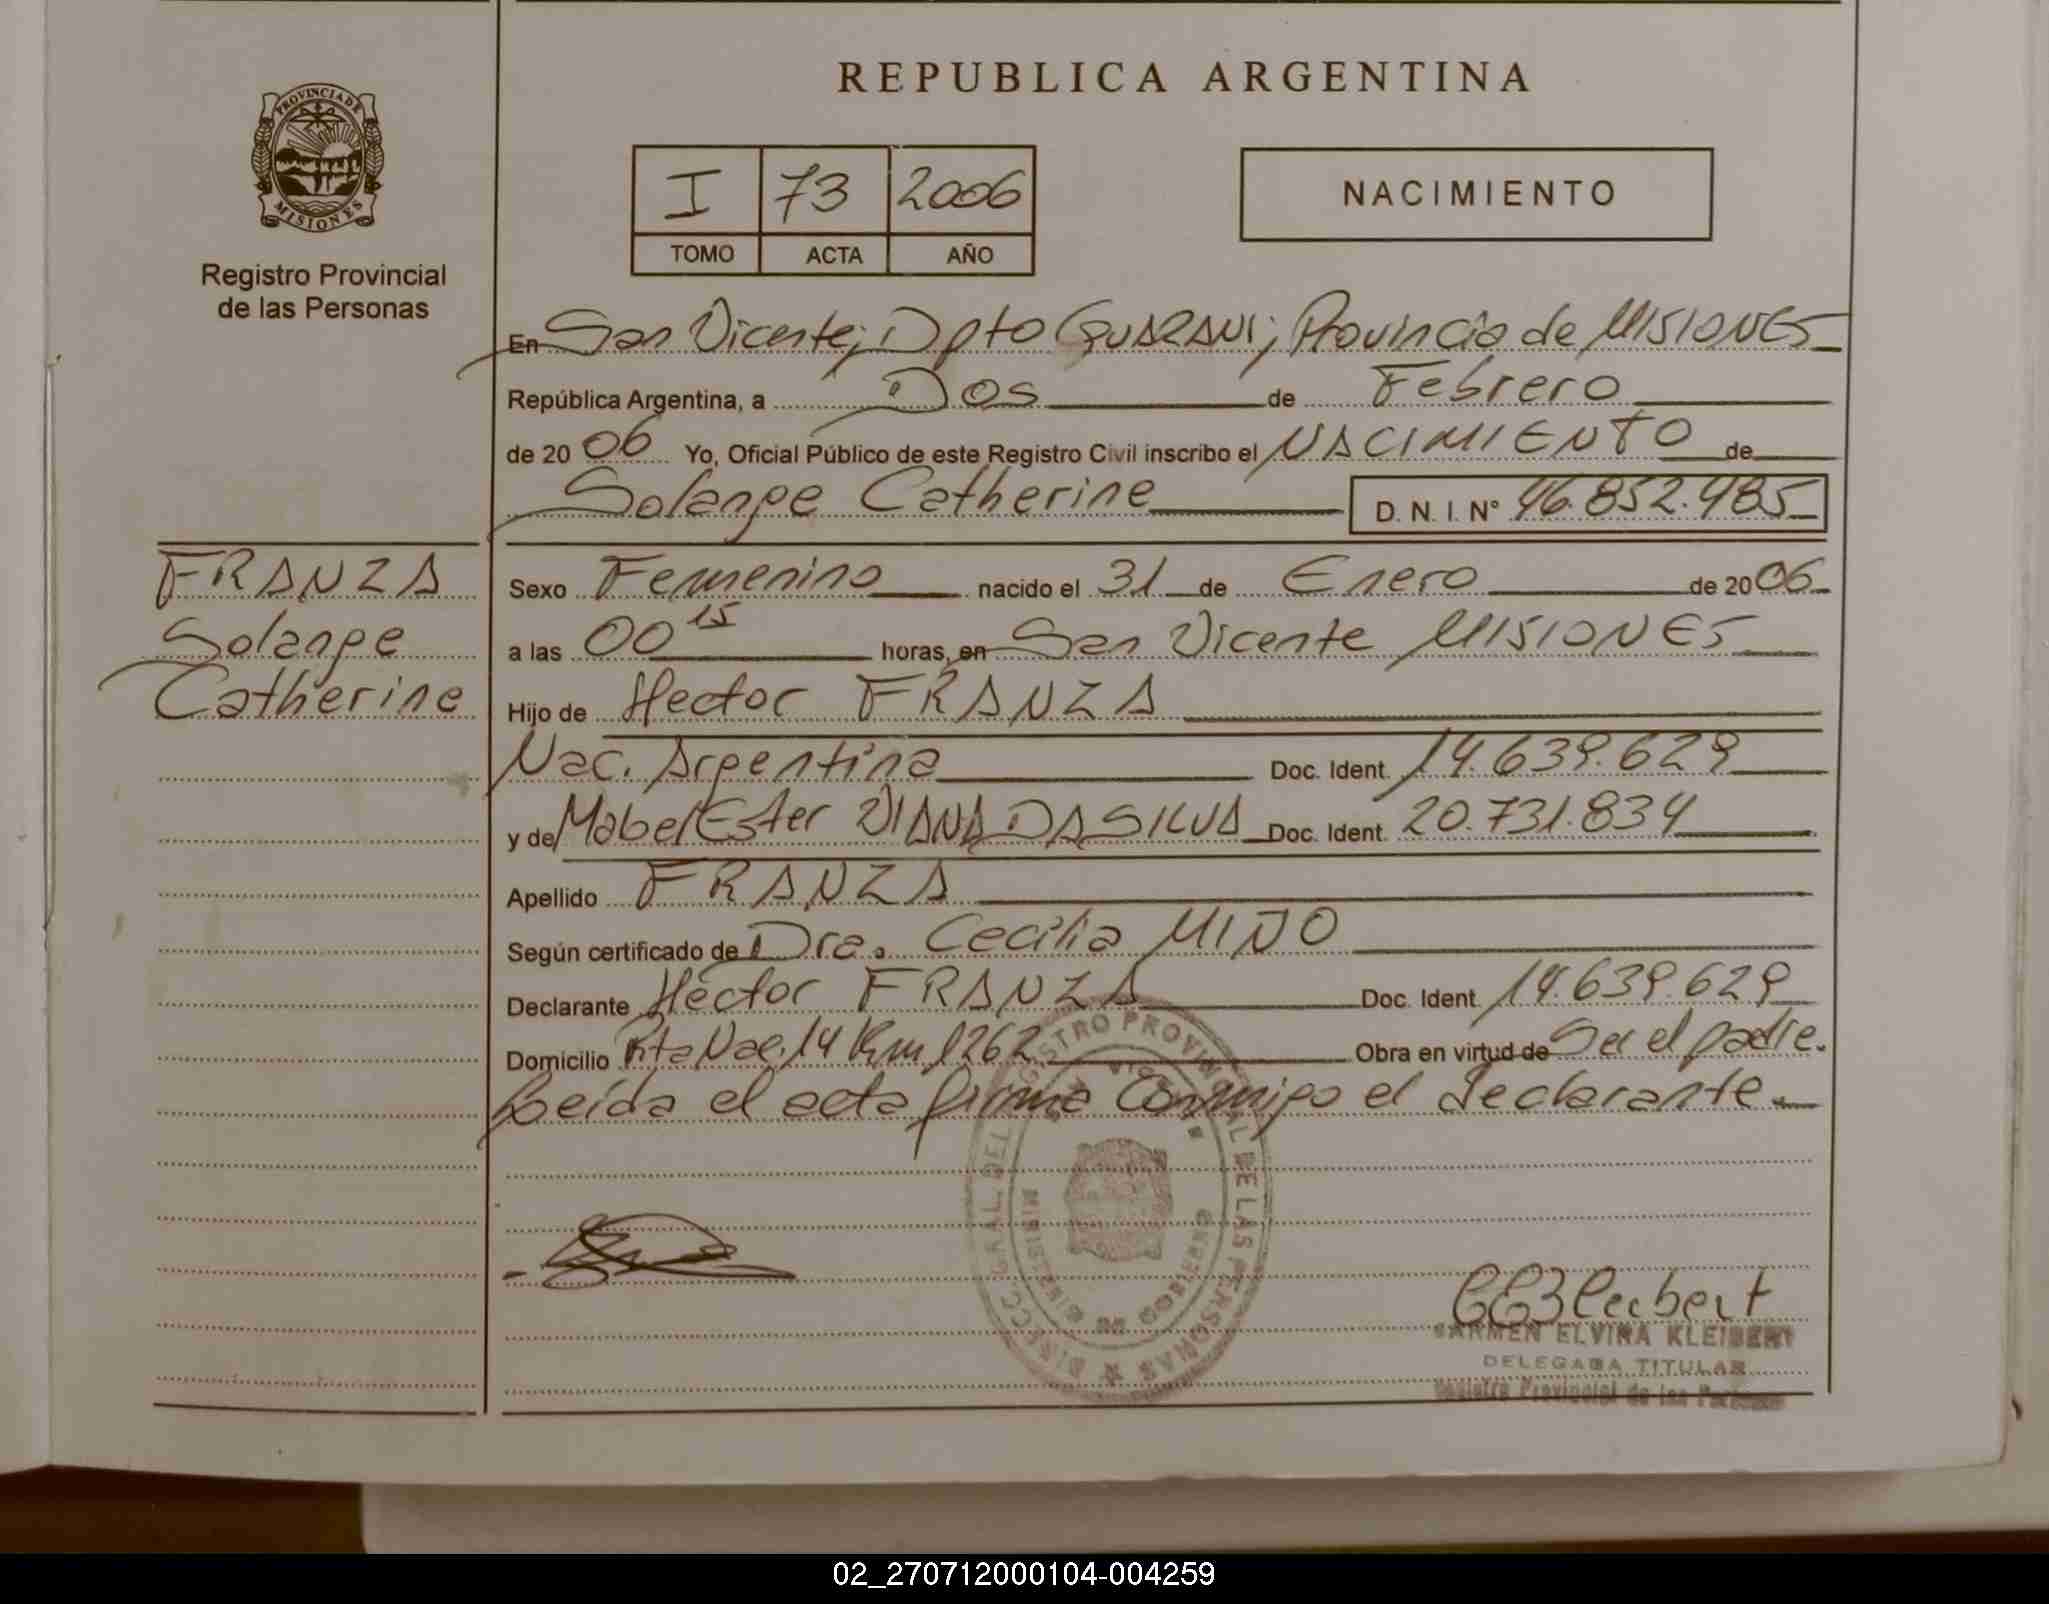 PROVINCIA DE
MISIONES
Registro Provincial
de las Personas
REPUBLICA ARGENTINA
I 73 2006
TOMO ACTA AÑO
NACIMIENTO
En San Vicente; Dpto GUARANI; Provincia de MISIONES
República Argentina, a Dos de Febrero
de 2006 Yo, Oficial Público de este Registro Civil inscribo el NACIMIENTO de
Solange Catherine D. N. I. N° 46.852.985
FRANZA
Solange
Catherine
Sexo Femenino nacido el 31 de Enero de 2006
a las 00 15 horas, en San Vicente MISIONES
Hijo de Hector FRANZA
Nac. Argentina Doc. Ident. 14.639.629
y de Mabel Ester VIANA DA SILVA Doc. Ident. 20.731.834
Apellido FRANZA
Según certificado de Dra. Cecilia MIÑO
Declarante Hector FRANZA Doc. Ident. 14.639.629
Domicilio Rta Nac. 14 Km 1262 Obra en virtud de Ser el padre.
Leída el acta firma Conmigo el declarante.
DIRECC. GRAL. DEL REGISTRO PROVINCIAL DE LAS PERSONAS
MINISTERIO DE GOBIERNO
CARMEN ELVIRA KLEIBERT
DELEGADA TITULAR
Registro Provincial de las Personas
02_270712000104-004259